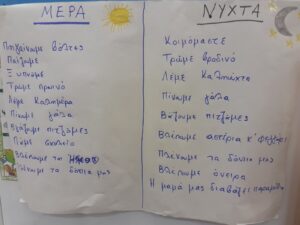 ΜΕΡΑ
Πηγαίνουμε βόλτες
Παίζουμε
Ξυπνάμε
Τρώμε πρωινό
Λέμε Καλημέρα
Πίνουμε γάλα
Βγάζουμε πιτζάμες
Πάμε σχολείο
Βλέπουμε τον
Πλένουμε τα δόντια μας
ΝΥΧΤΑ
Κοιμόμαστε
Τρώμε βραδινό
Λέμε Καληνύχτα
Πίνουμε γάλα
Βάζουμε πιτζάμες
Βλέπουμε αστέρια κ' φεγγάρι
Πλένουμε τα δόντια μας
Βλέπουμε όνειρα
Η μαμά μας διαβάζει παραμύθι